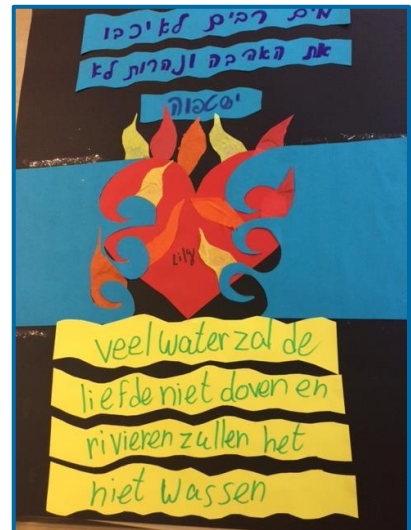 מים רבים לא יכבו
את האהבה ונהרות לא
ישטפוה
Lily
veel water zal de
liefde niet doven en
rivieren zullen het
niet wassen